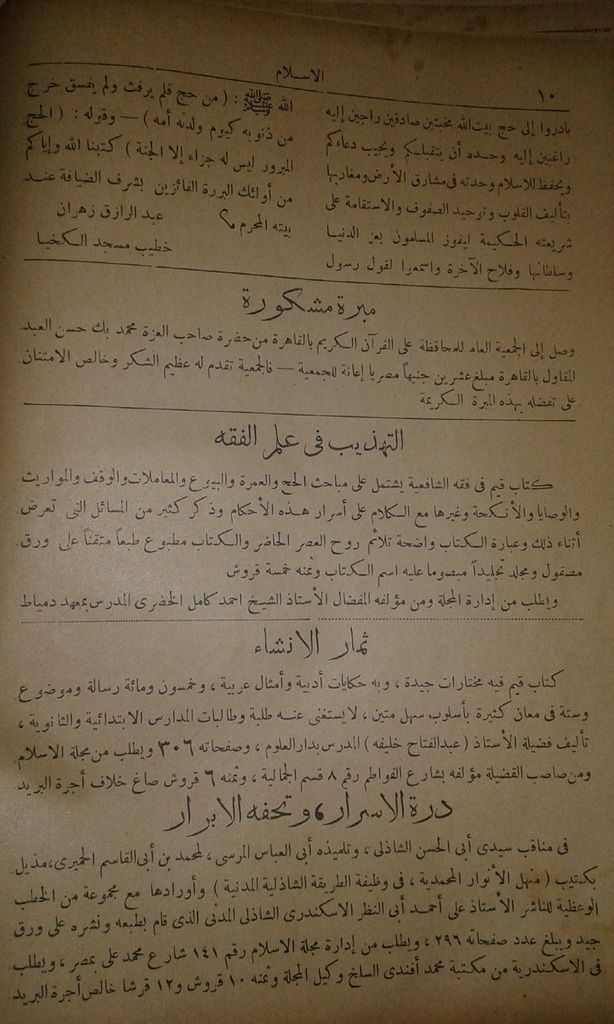 الاسلام
١٠
بادروا إلى حج بيت الله مخبتين صادقين راجين إليه
راغبين إليه وحده أن يتقبلكم ويجيب دعاءكم
ويحفظ للاسلام وحدته فى مشارق الأرض ومغاربها
بتأليف القلوب وتوحيد الصفوف والاستقامة على
شريعته الحكيمة ليفوز المسلمون بعز الدنيا
وسلطانها وفلاح الآخرة واسمعوا لقول رسول
الله ﷺ : ( من حج فلم يرفث ولم يفسق خرج
من ذنوبه كيوم ولدته أمه ) — وقوله : ( الحج
المبرور ليس له جزاء إلا الجنة ) كتبنا الله وإياكم
من أولئك البررة الفائزين بشرف الضيافة عند
بيته المحرم
عبد الرازق زهران
خطيب مسجد الكخيا
مبرة مشكورة
وصل إلى الجمعية العامه للمحافظة على القرآن الكريم بالقاهرة من حضرة صاحب العزة محمد بك حسن العبد
المقاول بالقاهرة مبلغ عشرين جنيهاً مصريا إعانة للجمعية — فالجمعية تقدم له عظيم الشكر وخالص الامتنان
على تفضله بهذه المبرة الكريمة
التهذيب فى علم الفقه
كتاب قيم فى فقه الشافعية يشتمل على مباحث الحج والعمرة والبيوع والمعاملات والوقف والمواريث
والوصايا والأنكحة وغيرها مع الكلام على أسرار هذه الأحكام وذكر كثير من المسائل التى تعرض
أثناء ذلك وعبارة الكتاب واضحة تلائم روح العصر الحاضر والكتاب مطبوع طبعاً متقناً على ورق
مصقول ومجلد تجليداً مبصوما عليه اسم الكتاب وثمنه خمسة قروش
ويطلب من إدارة المجلة ومن مؤلفه المفضال الأستاذ الشيخ احمد كامل الخضرى المدرس بمعهد دمياط
ثمار الانشاء
كتاب قيم فيه مختارات جيدة ، وبه حكايات أدبية وأمثال عربية ، وخمسون ومائة رسالة وموضوع
وستة فى معان كثيرة بأسلوب سهل متين ، لا يستغنى عنه طلبة وطالبات المدارس الابتدائية والثانوية ،
تأليف فضيلة الأستاذ ( عبد الفتاح خليفه ) المدرس بدار العلوم ، وصفحاته ٣٠٦ ويطلب من مجلة الاسلام
ومن صاحب الفضيلة مؤلفه بشارع الفواطم رقم ٨ قسم الجمالية ، وثمنه ٦ قروش صاغ خلاف أجرة البريد
درة الاسرار ، وتحفه الابرار
فى مناقب سيدى أبى الحسن الشاذلى ، وتلميذه أبى العباس المرسى ، لمحمد بن أبى القاسم الحميرى ، مذيل
بكتيب ( منهل الأنوار المحمدية ، فى وظيفة الطريقة الشاذلية المدنية ) وأورادها مع مجموعة من الخطب
الوعظية للناشر الأستاذ على أحمد أبى النظر الاسكندرى الشاذلى المدنى الذى قام بطبعه ونشره على ورق
جيد ويبلغ عدد صفحاته ٢٩٦ ، ويطلب من إدارة مجلة الاسلام رقم ١٤١ شارع محمد على بمصر ، ويطلب
فى الاسكندرية من مكتبة محمد أفندى السلخ وكيل المجلة وثمنه ١٠ قروش و ١٢ قرشا خالص أجرة البريد